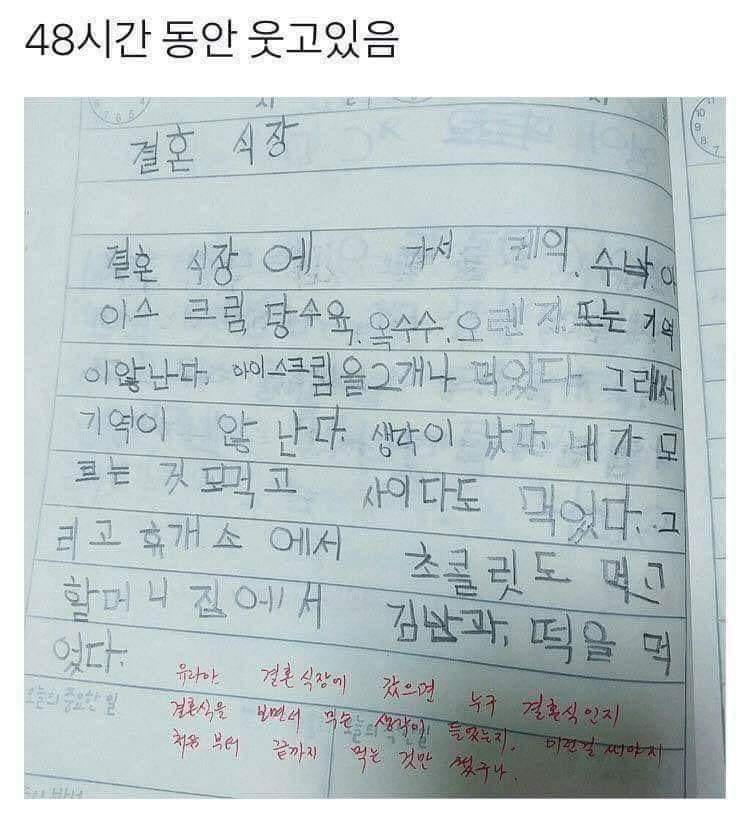 48시간 동안 웃고있음
결혼 식장
결혼 식장 에 가서 케익. 수박. 아
아스 크림 탕수육. 옥수수. 오렌지. 또는 기역
이않난다. 아이스크림을2개나 먹었다. 그래서
기역이 않 난다. 생각이 났다. 내가 모
르는 것 모먹고 사이다도 먹었다. 그
리고 휴개소 에서 초콜릿도 먹고
할머니 집에서 김반과, 떡을 먹
었다.
유라야 결혼식장에 갔으면 누구 결혼식인지
결혼식을 보면서 무슨 생각이 들었는지. 이런걸 써야지
처음 부터 끝까지 먹는 것만 썼구나.
오늘의 중요한 일